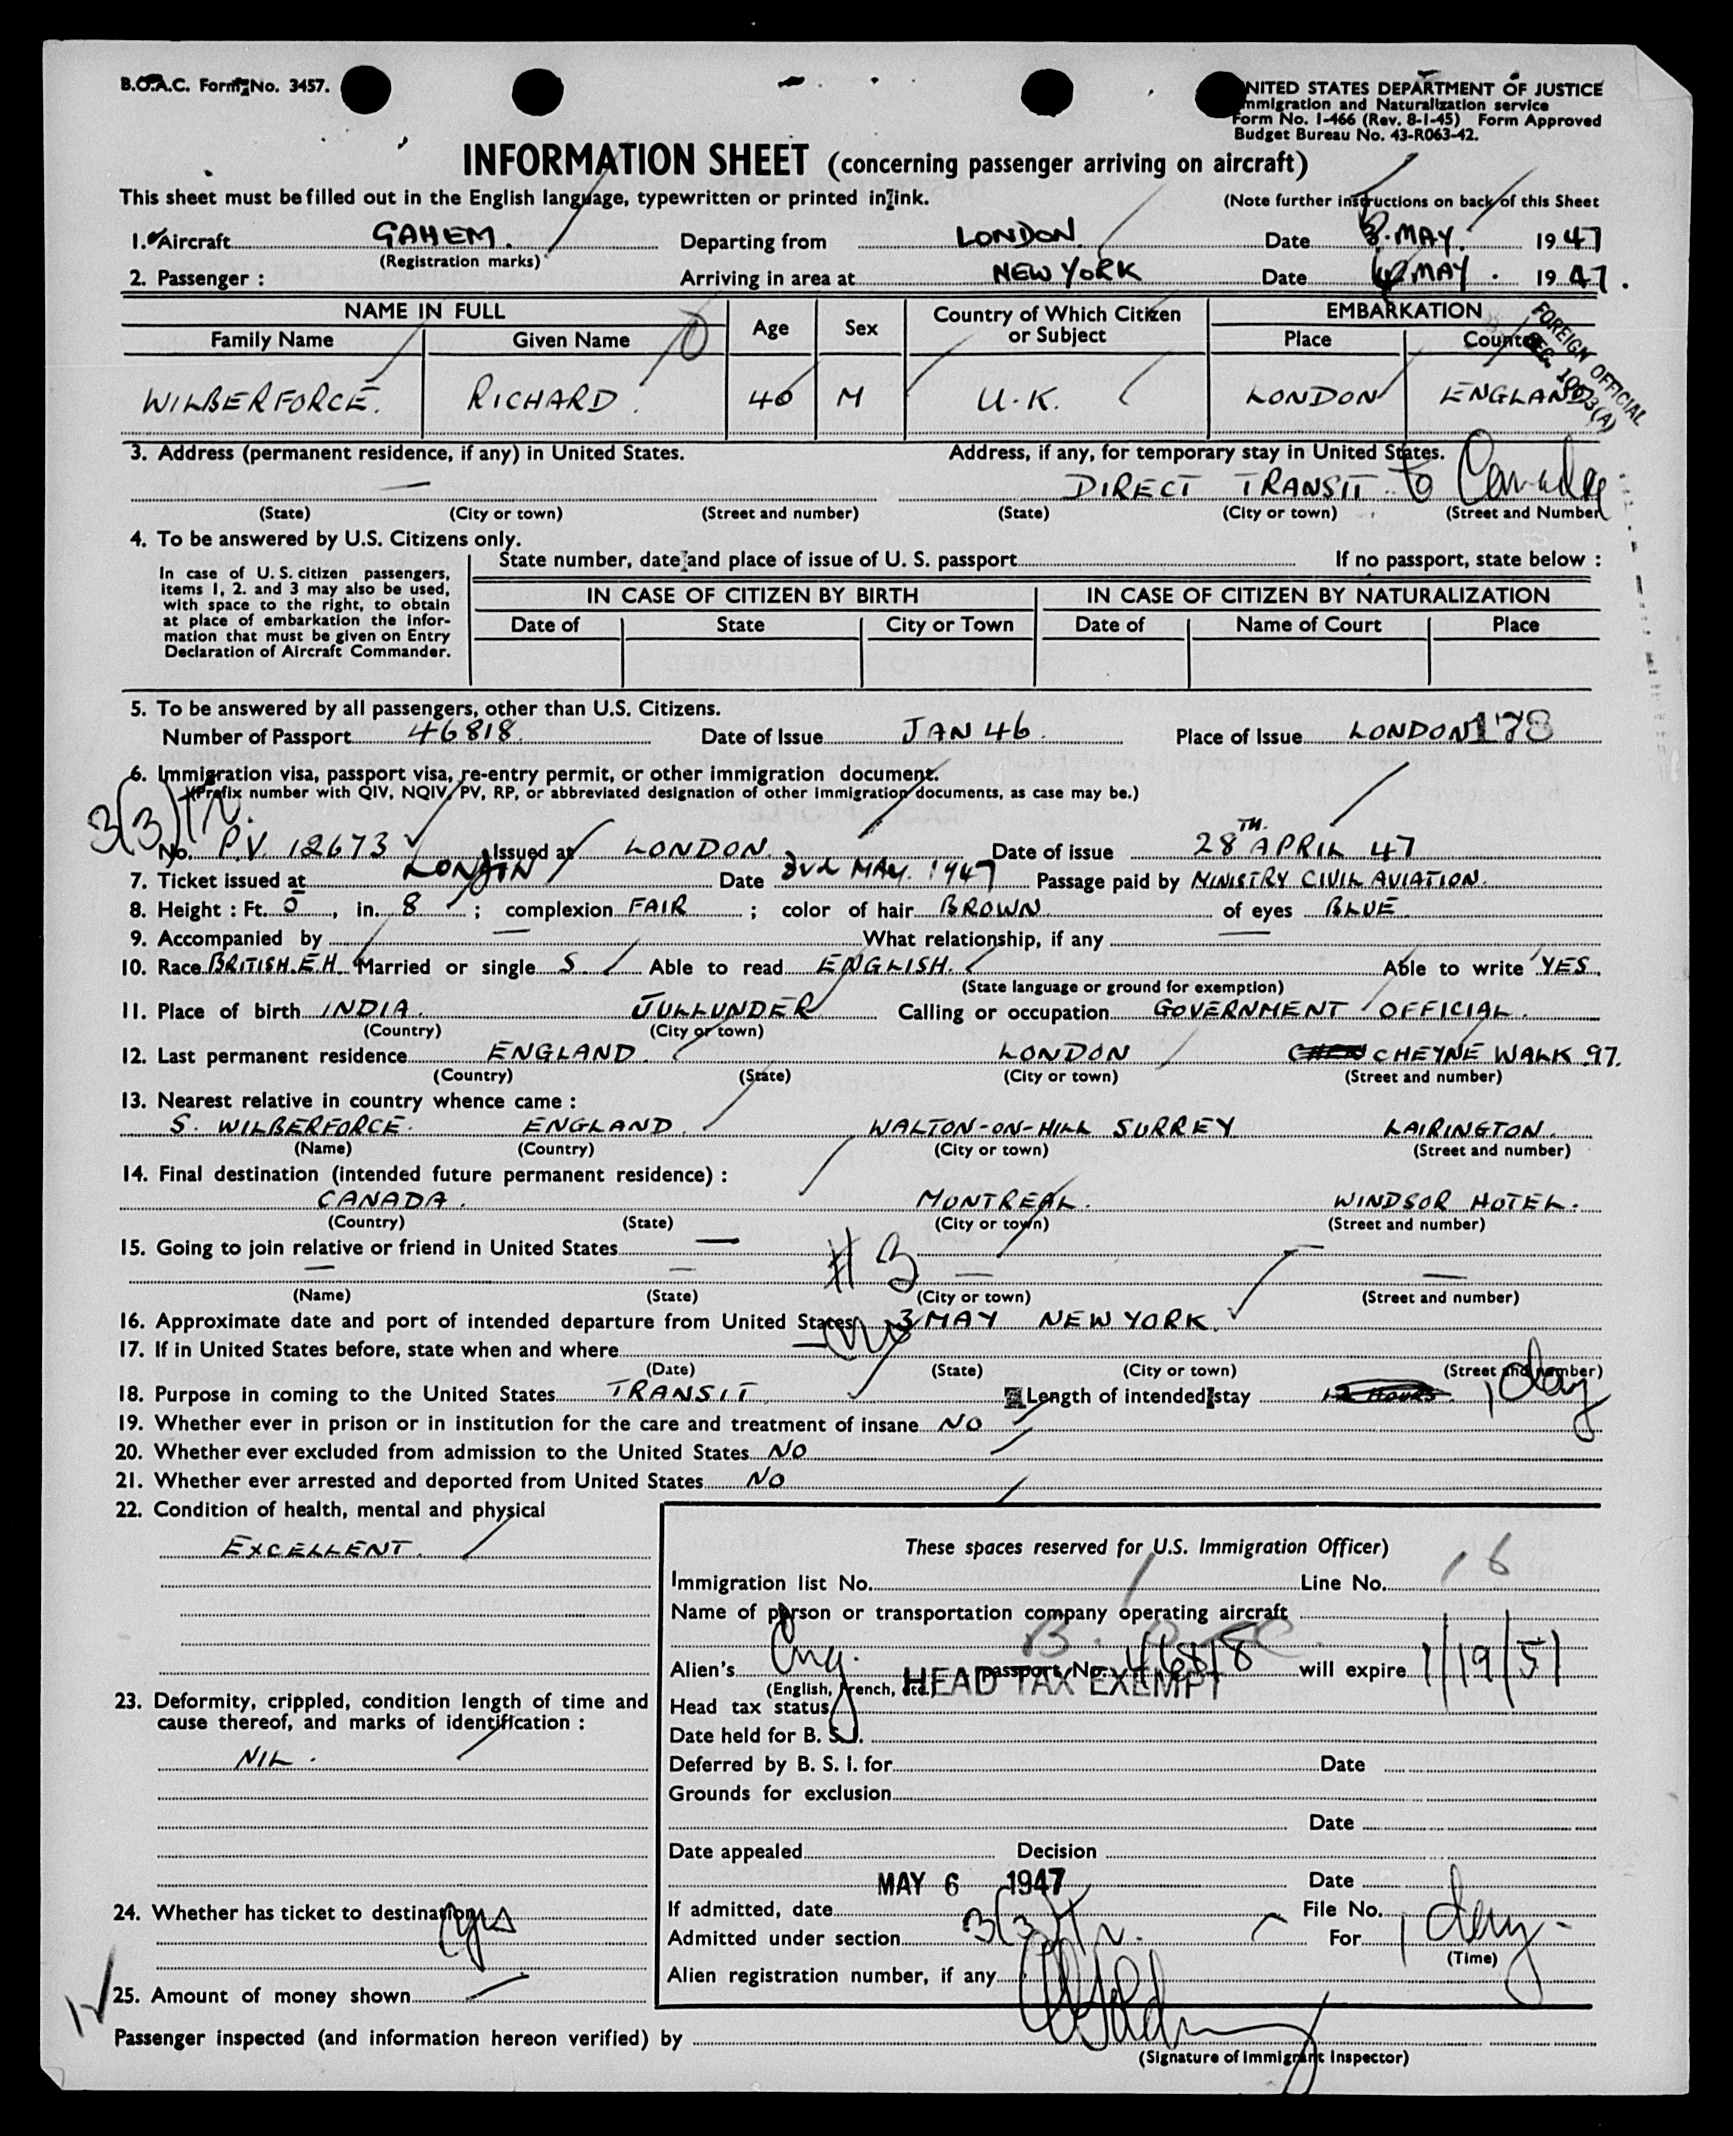 B.O.A.C. Form No. 3457.
UNITED STATES DEPARTMENT OF JUSTICE
Immigration and Naturalization service
Form No. I-466 (Rev. 8-1-45) Form Approved
Budget Bureau No. 43-R063-42.
INFORMATION SHEET (concerning passenger arriving on aircraft)
This sheet must be filled out in the English language, typewritten or printed in ink.
(Note further instructions on back of this Sheet
1. Aircraft GAHEM. Departing from LONDON Date MAY. 1947
(Registration marks)
2. Passenger : Arriving in area at NEW YORK Date MAY. 1947.
NAME IN FULL Age Sex Country of Which Citizen or Subject EMBARKATION
Family Name Given Name Place Country
FOREIGN OFFICIAL
WILBERFORCE. RICHARD. 40 M U.K. LONDON ENGLAND
3. Address (permanent residence, if any) in United States. Address, if any, for temporary stay in United States.
— DIRECT TRANSIT to Canada
(State) (City or town) (Street and number) (State) (City or town) (Street and Number
4. To be answered by U.S. Citizens only.
State number, date and place of issue of U. S. passport If no passport, state below :
In case of U.S. citizen passengers,
items 1, 2. and 3 may also be used,
with space to the right, to obtain
at place of embarkation the infor-
mation that must be given on Entry
Declaration of Aircraft Commander.
IN CASE OF CITIZEN BY BIRTH IN CASE OF CITIZEN BY NATURALIZATION
Date of State City or Town Date of Name of Court Place
5. To be answered by all passengers, other than U.S. Citizens.
Number of Passport 46818. Date of Issue JAN 46. Place of Issue LONDON 178
6. Immigration visa, passport visa, re-entry permit, or other immigration document.
(Prefix number with QIV, NQIV, PV, RP, or abbreviated designation of other immigration documents, as case may be.)
3(3)
No. P.V. 12673 Issued at LONDON. Date of issue 28TH. APRIL 47
7. Ticket issued at LONDON Date 3rd MAY. 1947 Passage paid by MINISTRY CIVIL AVIATION.
8. Height : Ft. 5, in. 8 ; complexion FAIR ; color of hair BROWN. of eyes BLUE.
9. Accompanied by — What relationship, if any —
10. Race BRITISH. E.H. Married or single S. Able to read ENGLISH. Able to write YES.
(State language or ground for exemption)
11. Place of birth INDIA. JULLUNDER Calling or occupation GOVERNMENT OFFICIAL.
(Country) (City or town)
12. Last permanent residence ENGLAND. LONDON CHEYNE WALK 97.
(Country) (State) (City or town) (Street and number)
13. Nearest relative in country whence came :
S. WILBERFORCE. ENGLAND. WALTON-ON-HILL SURREY LAIRINGTON.
(Name) (Country) (City or town) (Street and number)
14. Final destination (intended future permanent residence) :
CANADA. MONTREAL. WINDSOR HOTEL.
(Country) (State) (City or town) (Street and number)
15. Going to join relative or friend in United States —
# 3
(Name) (State) (City or town) (Street and number)
16. Approximate date and port of intended departure from United States 3 MAY NEW YORK.
17. If in United States before, state when and where
(Date) (State) (City or town) (Street and number)
18. Purpose in coming to the United States TRANSIT Length of intended stay 1 day
19. Whether ever in prison or in institution for the care and treatment of insane NO
20. Whether ever excluded from admission to the United States NO
21. Whether ever arrested and deported from United States NO
22. Condition of health, mental and physical
EXCELLENT.
23. Deformity, crippled, condition length of time and
cause thereof, and marks of identification :
NIL.
24. Whether has ticket to destination yes
25. Amount of money shown
These spaces reserved for U.S. Immigration Officer)
Immigration list No. Line No. 16
Name of person or transportation company operating aircraft
B.O.A.C.
Alien's Eng. passport No. 46818 will expire 1/19/51
(English, French, etc.) HEAD TAX EXEMPT
Head tax status
Date held for B. S. I.
Deferred by B. S. I. for Date
Grounds for exclusion
Date
Date appealed Decision
Date
MAY 6 1947
If admitted, date File No.
Admitted under section 3(3) For 1 day
(Time)
Alien registration number, if any
Passenger inspected (and information hereon verified) by
(Signature of Immigrant Inspector)